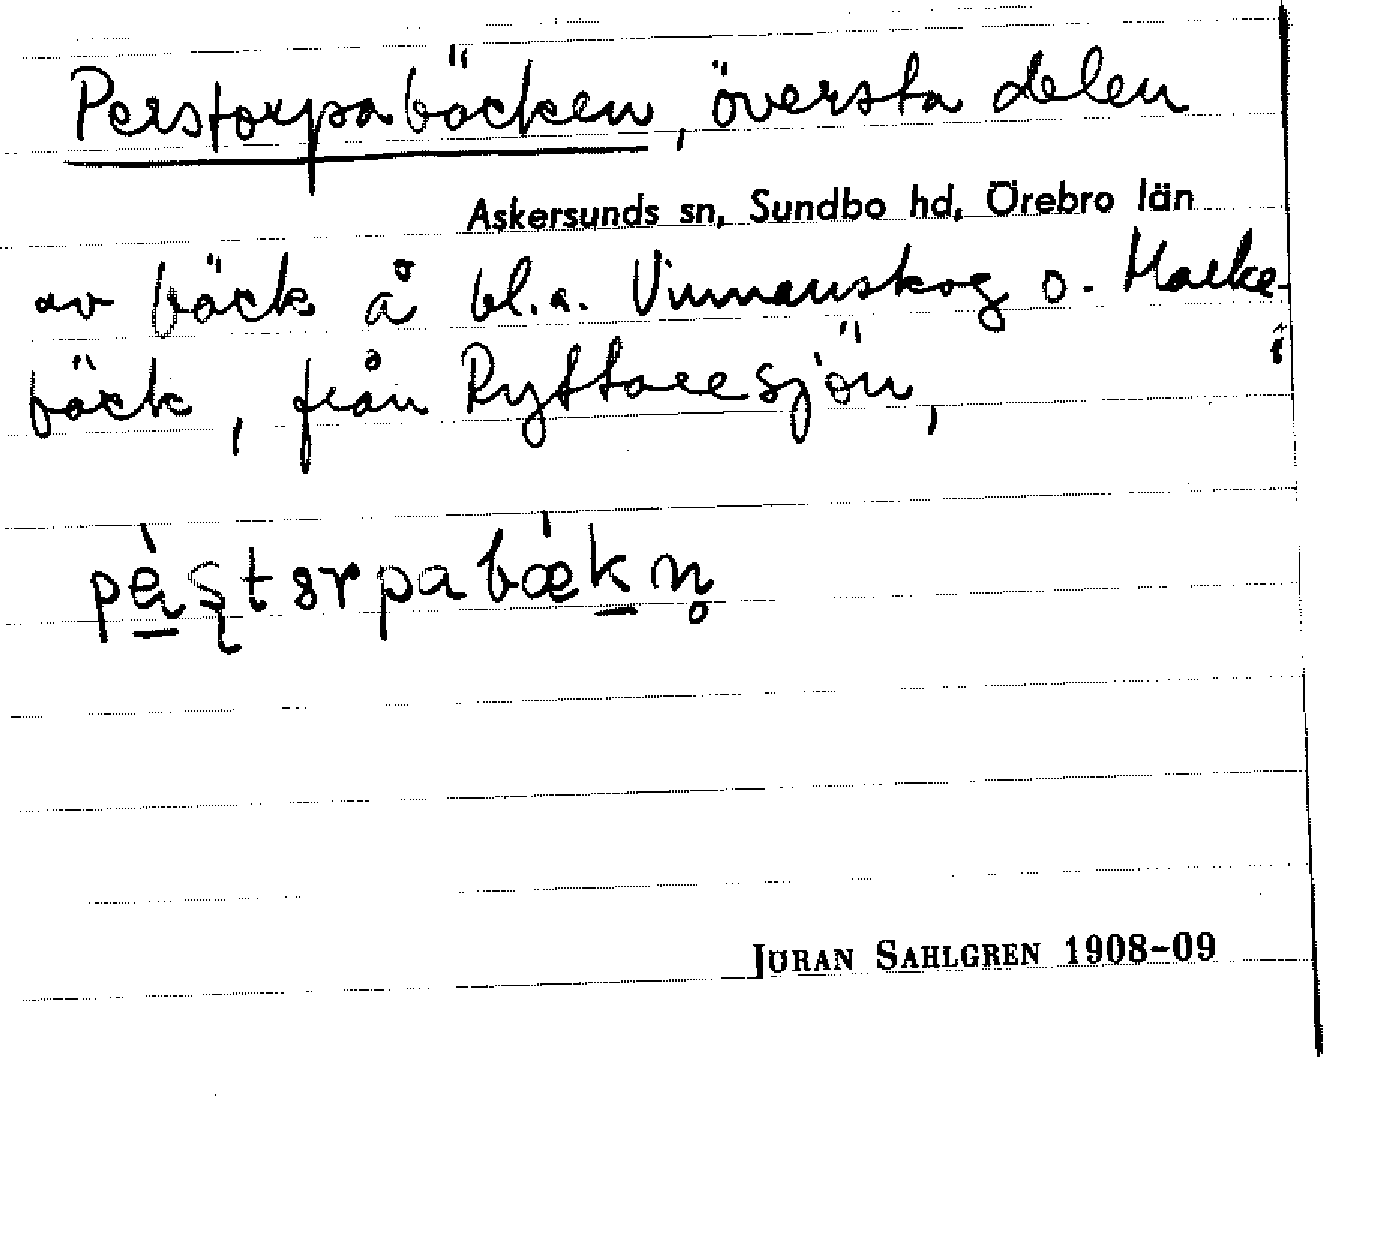 Perstorpabäcken, översta delen
Askersunds sn, Sundbo hd, Örebro län
av bäck å bl.a. Vinnanskog o.
bäck, från Ryttaresjön,
JÖRAN SAHLGREN 1908-09